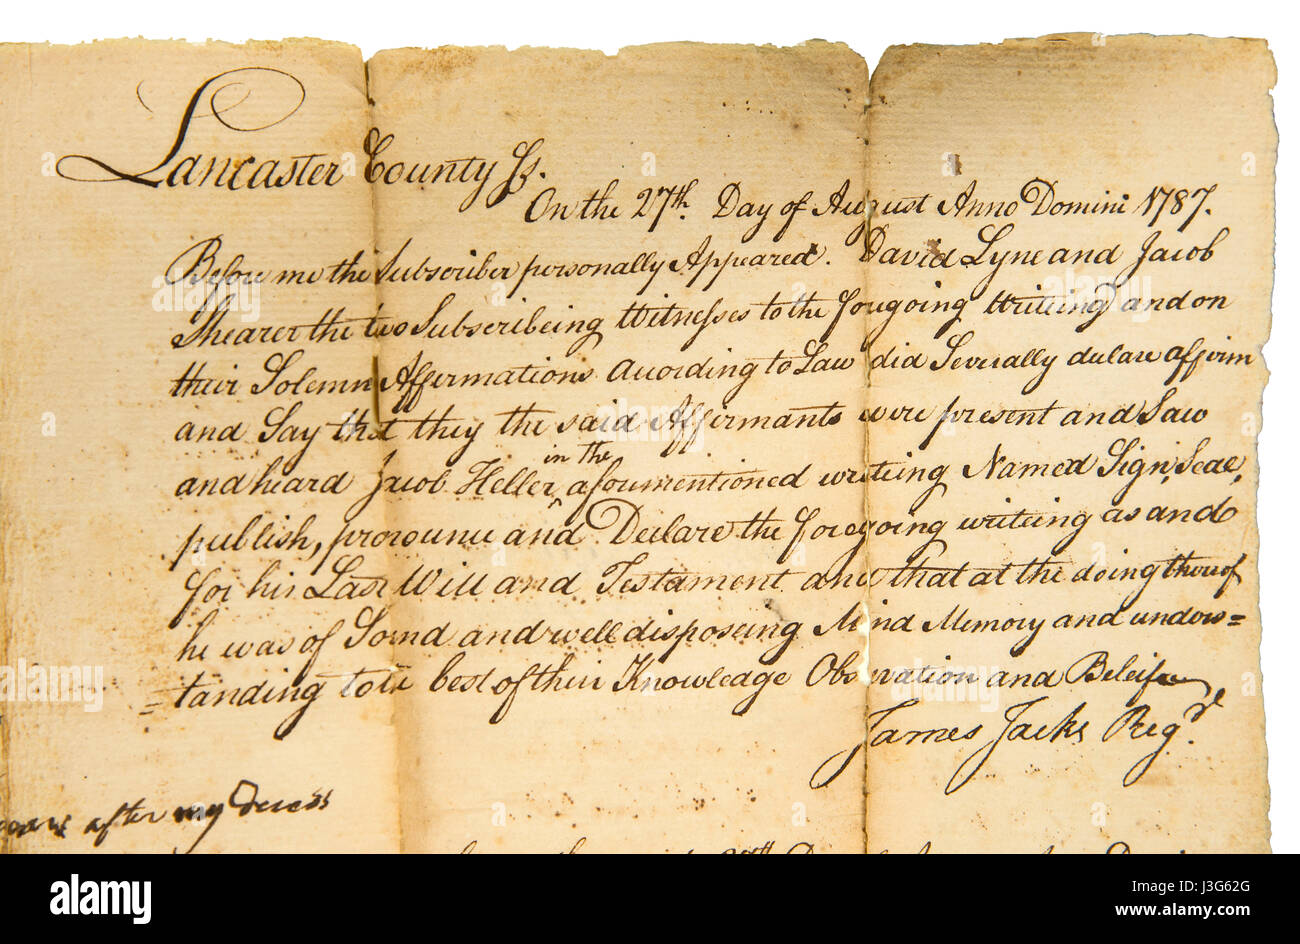 Lancaster County Ss.
On the 27th. Day of August Anno Domini 1787.
Before me the Subscriber personally Appeared. David Lyne and Jacob
Shearer the two Subscribeing Witnesses to the foregoing Writeing and on
their Solemn Affirmations Acording to Law did Severally declare affirm
and Say that they the said Affirmants were present and Saw
and heard Jacob Heller in the aforementioned writeing Named Sign, Seal,
publish, pronounce and Declare the foregoing writeing as and
for his Last Will and Testament and that at the doing thereof
he was of Sound and well disposeing Mind Memory and unders=
=tanding to the best of their Knowledge Observation and Beleif
James Jacks Regd.
after my Decess
alamy
Image ID: J3G62G
www.alamy.com